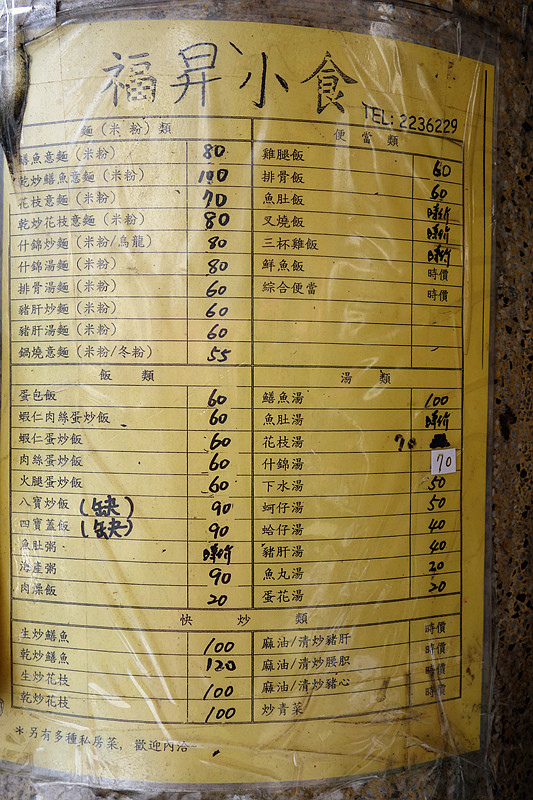 福昇小食
TEL: 2236229
麵（米粉）類
鱔魚意麵（米粉） 80
乾炒鱔魚意麵（米粉） 100
花枝意麵（米粉） 70
乾炒花枝意麵（米粉） 80
什錦炒麵（米粉/烏龍） 80
什錦湯麵（米粉） 80
排骨湯麵（米粉） 60
豬肝炒麵（米粉） 60
豬肝湯麵（米粉） 60
鍋燒意麵（米粉/冬粉） 55
便當類
雞腿飯 60
排骨飯 60
魚肚飯 時价
叉燒飯 時价
三杯雞飯 時价
鮮魚飯 時價
綜合便當 時價
飯類
蛋包飯 60
蝦仁肉絲蛋炒飯 60
蝦仁蛋炒飯 60
肉絲蛋炒飯 60
火腿蛋炒飯 60
八寶炒飯（缺） 90
四寶蓋飯（缺） 90
魚肚粥 時价
海產粥 90
肉燥飯 20
湯類
鱔魚湯 100
魚肚湯 時价
花枝湯 70
什錦湯 70
下水湯 50
蚵仔湯 50
蛤仔湯 40
豬肝湯 40
魚丸湯 20
蛋花湯 20
快炒類
生炒鱔魚 100
乾炒鱔魚 120
生炒花枝 100
乾炒花枝 100
麻油/清炒豬肝 時價
麻油/清炒腰脤 時價
麻油/清炒豬心 時價
炒青菜 時價
*另有多種私房菜，歡迎內洽